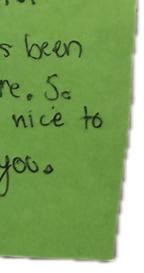 s been
re. So
nice to
you.